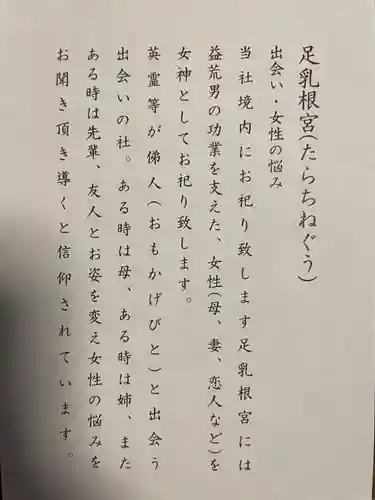 足乳根宮(たらちねぐう)
出会い・女性の悩み
当社境内にお祀り致します足乳根宮には
益荒男の功業を支えた、女性(母、妻、恋人など)を
女神としてお祀り致します。
英霊等が俤人(おもかげびと)と出会う
出会いの社。ある時は母、ある時は姉、また
ある時は先輩、友人とお姿を変え女性の悩みを
お聞き頂き導くと信仰されています。